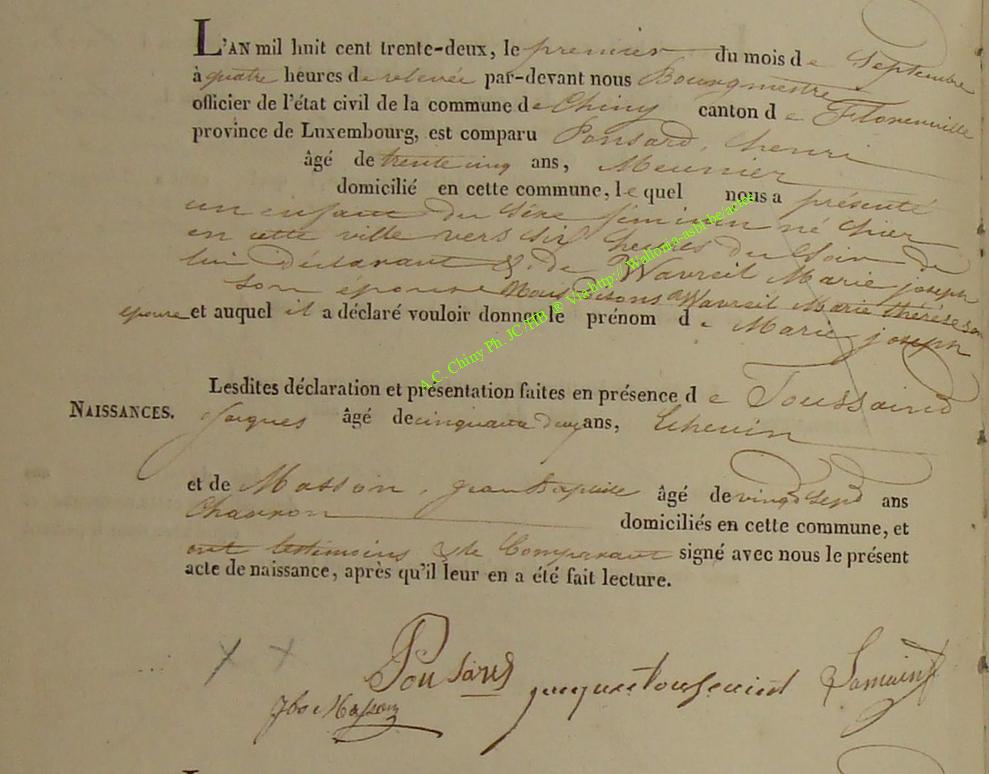 L'AN mil huit cent trente-deux, le premier du mois de Septembre
à quatre heures de relevée par-devant nous Bourgmestre
officier de l'état civil de la commune de Chiny canton de Florenville
province de Luxembourg, est comparu Ponsard, henri
âgé de trente cinq ans, Meunier
domicilié en cette commune, lequel nous a présenté
un enfant du Séxe féminin né hier
en cette ville vers six heures du Soir de
lui déclarant & de Wavreil Marie joseph
son epouse Nous disons Wavreil Marie thérèse son
epouse et auquel il a déclaré vouloir donner le prénom de Marie joseph
Lesdites déclaration et présentation faites en présence de Toussaind
NAISSANCES.
Jaques âgé de cinquante deux ans, Echevin
et de Masson, Jean Baptiste âgé de vingd sepd ans
Charron domiciliés en cette commune, et
ont les témoins & le Comparant signé avec nous le présent
acte de naissance, après qu'il leur en a été fait lecture.
Ponsard
Jbte Masson
A.C. Chiny Ph. JC/HB @ Via http://Wallonia-asbl.be/actes